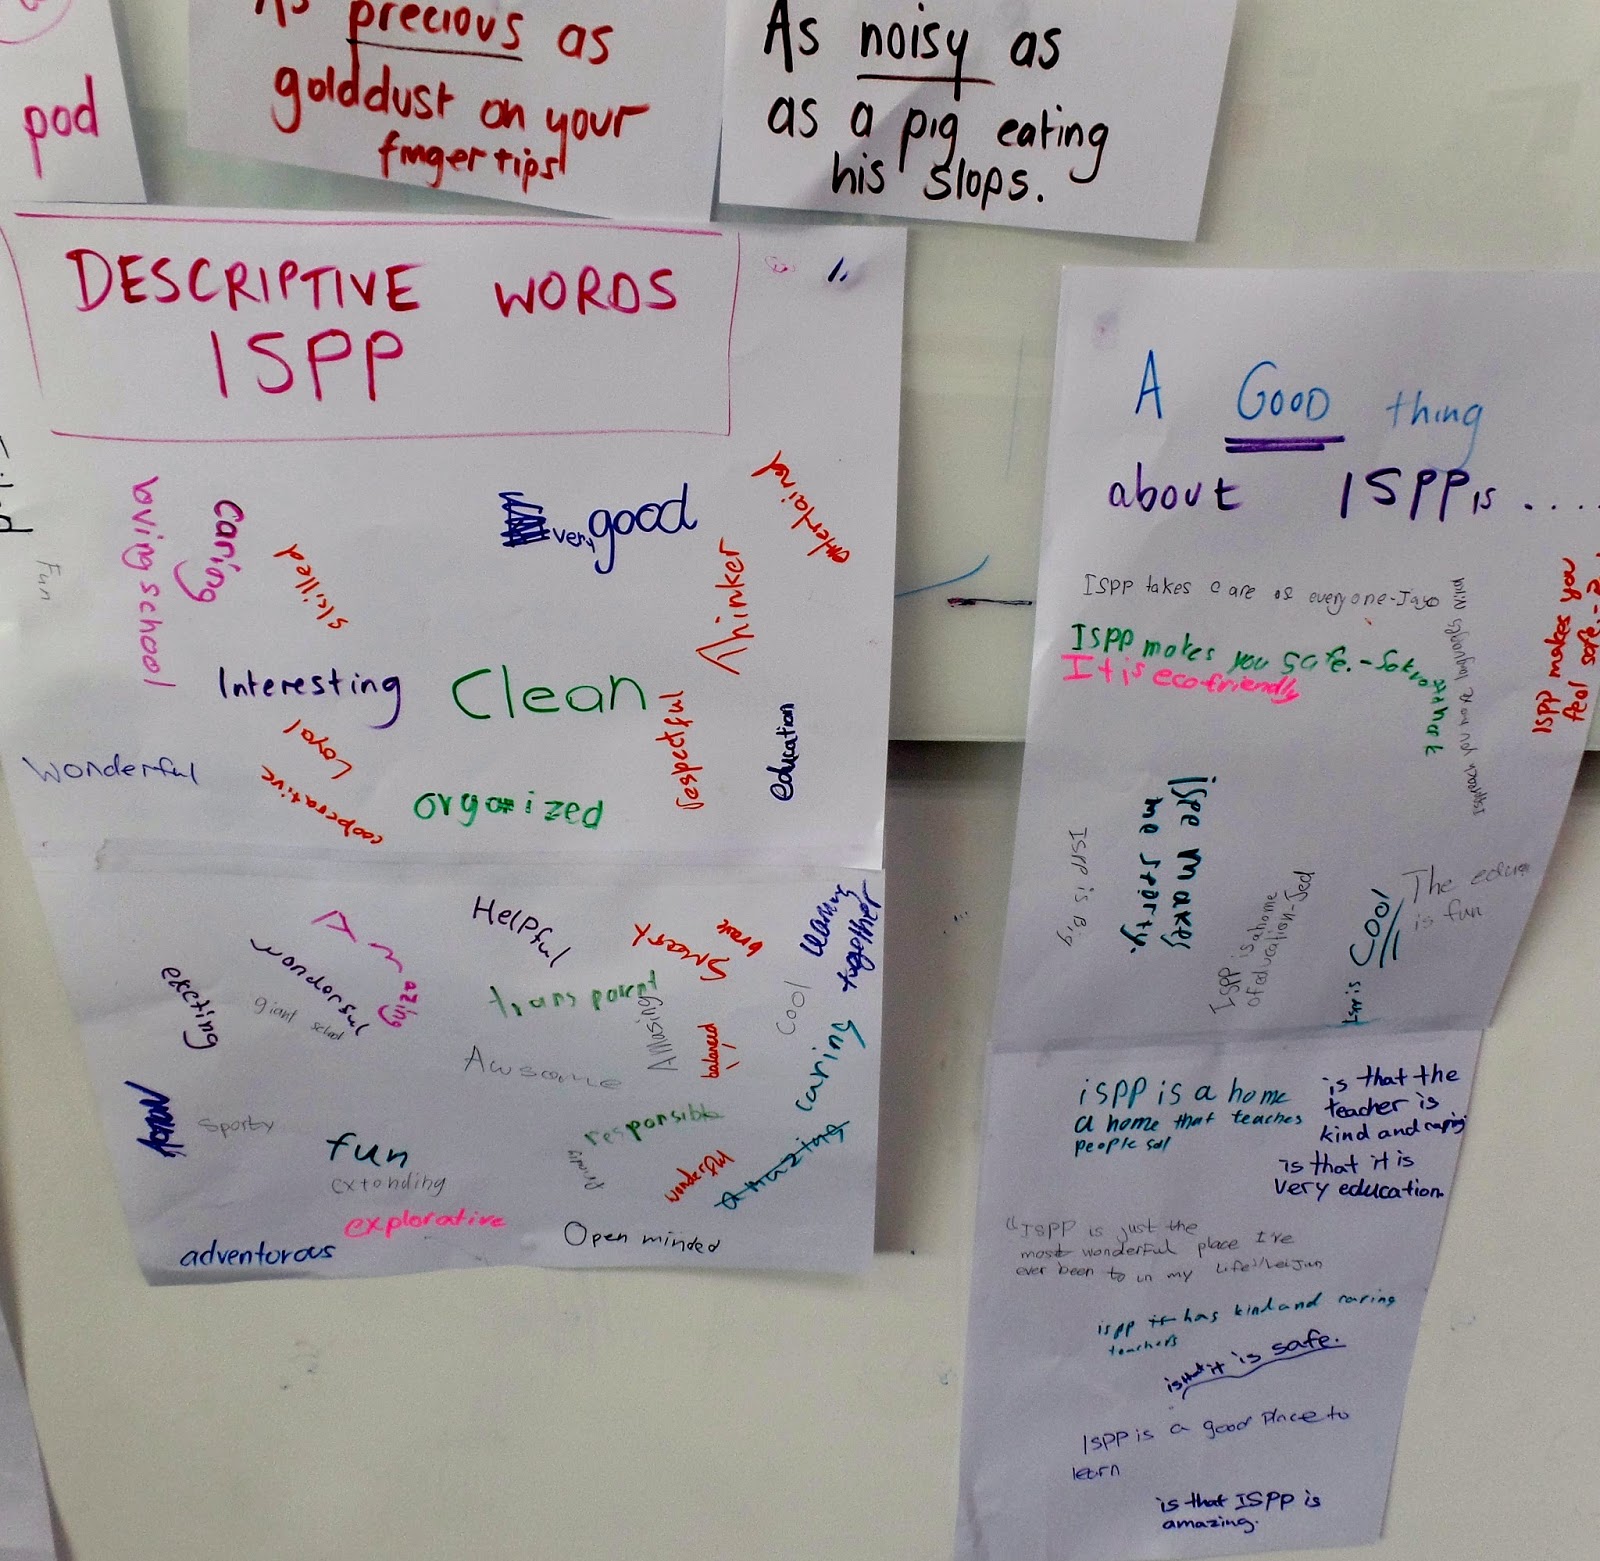 pod
As precious as
golddust on your
fingertips
As noisy as
as a pig eating
his slops.
DESCRIPTIVE WORDS
ISPP
Fun
loving school
Caring
skilled
very good
entertaining
Thinker
Interesting
Clean
respectful
education
Loyal
wonderful
cooperative
organized
Helpful
Smart
brave
learning
together
Amazing
wonderful
exciting
giant school
transparent
Amasing
Cool
balanced
Awsome
caring
Sporty
fun
responsible
extending
wonderful
amazing
explorative
Open minded
adventorous
A GOOD thing
about ISPP is ....
ISPP takes care of everyone-Jayo
ISPP makes you safe.-
It is ecofriendly
ISPP makes you
feel safe.-
ISPP is Big
me sporty.
ISPP is a home
of education-Jed
is Cool
The
is fun
ISPP is a home
a home that teaches
people
is that the
teacher is
kind and
is that it is
very education.
"ISPP is just the
most wonderful place I've
ever been to in my Life"
ispp it has kind and
teachers
is that it is safe.
ISPP is a good place to
learn
is that ISPP is
amazing.